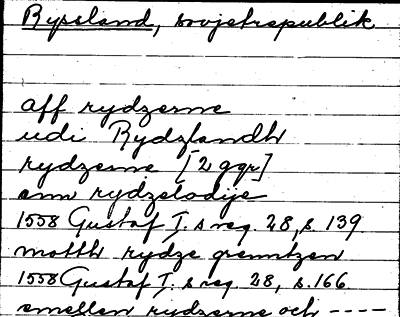 Ryssland, sovjetrepublik
aff rydzerne
udi Rydzlandh
rydzerne [2 ggr]
enn rydzelodije
1558 Gustaf I. s reg. 28, s. 139
motth rydze grenntzen
1558 Gustaf I. s reg. 28, s. 166
emellen rydzerne och ----